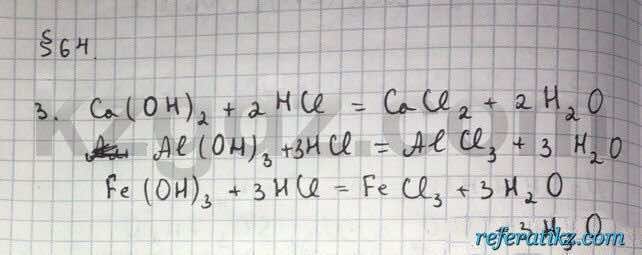 §64.
3. Ca(OH)₂ + 2HCl = CaCl₂ + 2H₂O
Al(OH)₃ + 3HCl = AlCl₃ + 3H₂O
Fe(OH)₃ + 3HCl = FeCl₃ + 3H₂O
3H₂O
referatikz.com